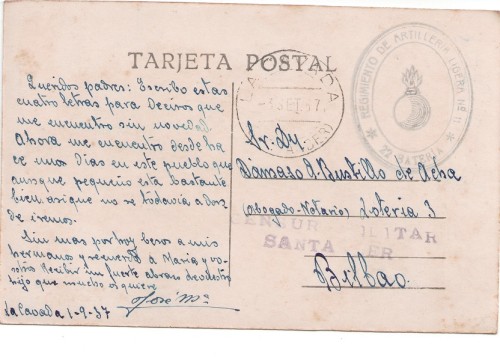 TARJETA POSTAL
REGIMIENTO DE ARTILLERIA LIGERA Nº 11
BATERIA
Queridos padres: Escribo estas
cuatro letras para deciros que
me encuentro sin novedad.
Ahora me encuentro desde ha
ce unos dias en este pueblo que
aunque pequeño está bastante
bien asi que no se todavia a don
de iremos.
Sin mas por hoy besos a mis
hermanos y recuerdos á Maria y vo
sotros recibir un fuerte abrazo de vuestro
hijo que mucho os quiere
José Mª
La Cavada 1-9-37
SET 37
Sr. Dn.
Damaso A. Bustillo de
(Abogado-Notario) Loteria 3
CENSURA MILITAR
SANTANDER
Bilbao.